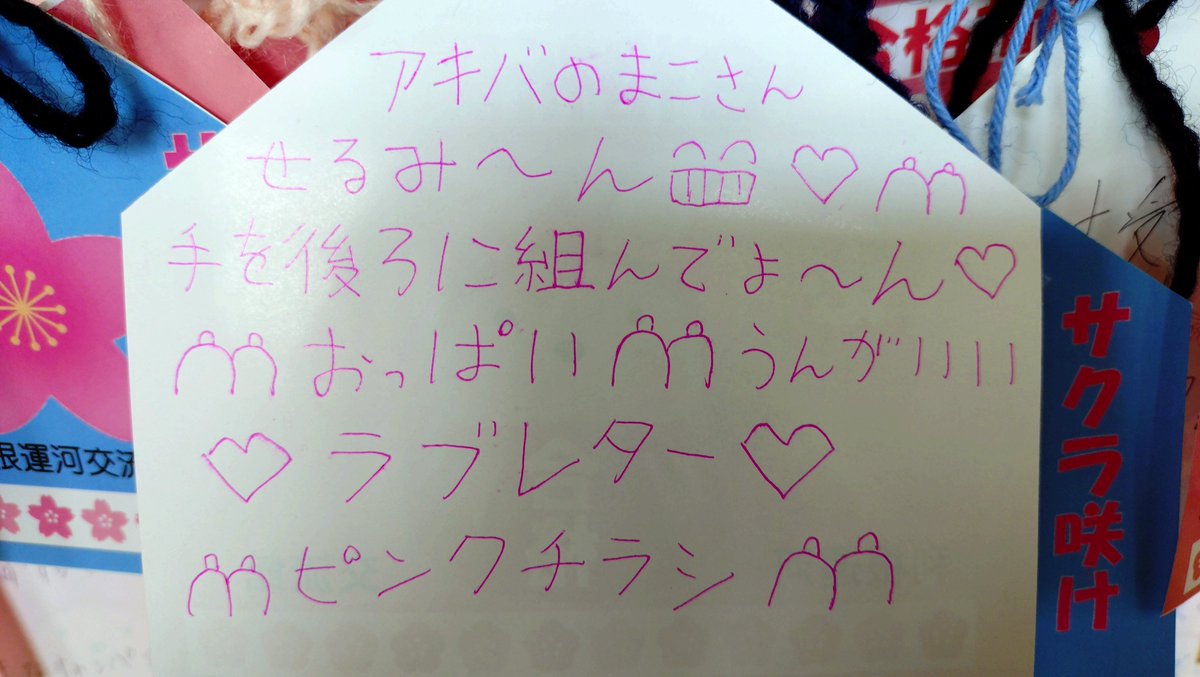 アキバのまこさん
せるみ〜ん♡
手を後ろに組んでよ〜ん♡
おっぱいうんがIIII
♡ラブレター♡
ピンクチラシ
サクラ咲け
根運河交流
合格
サ